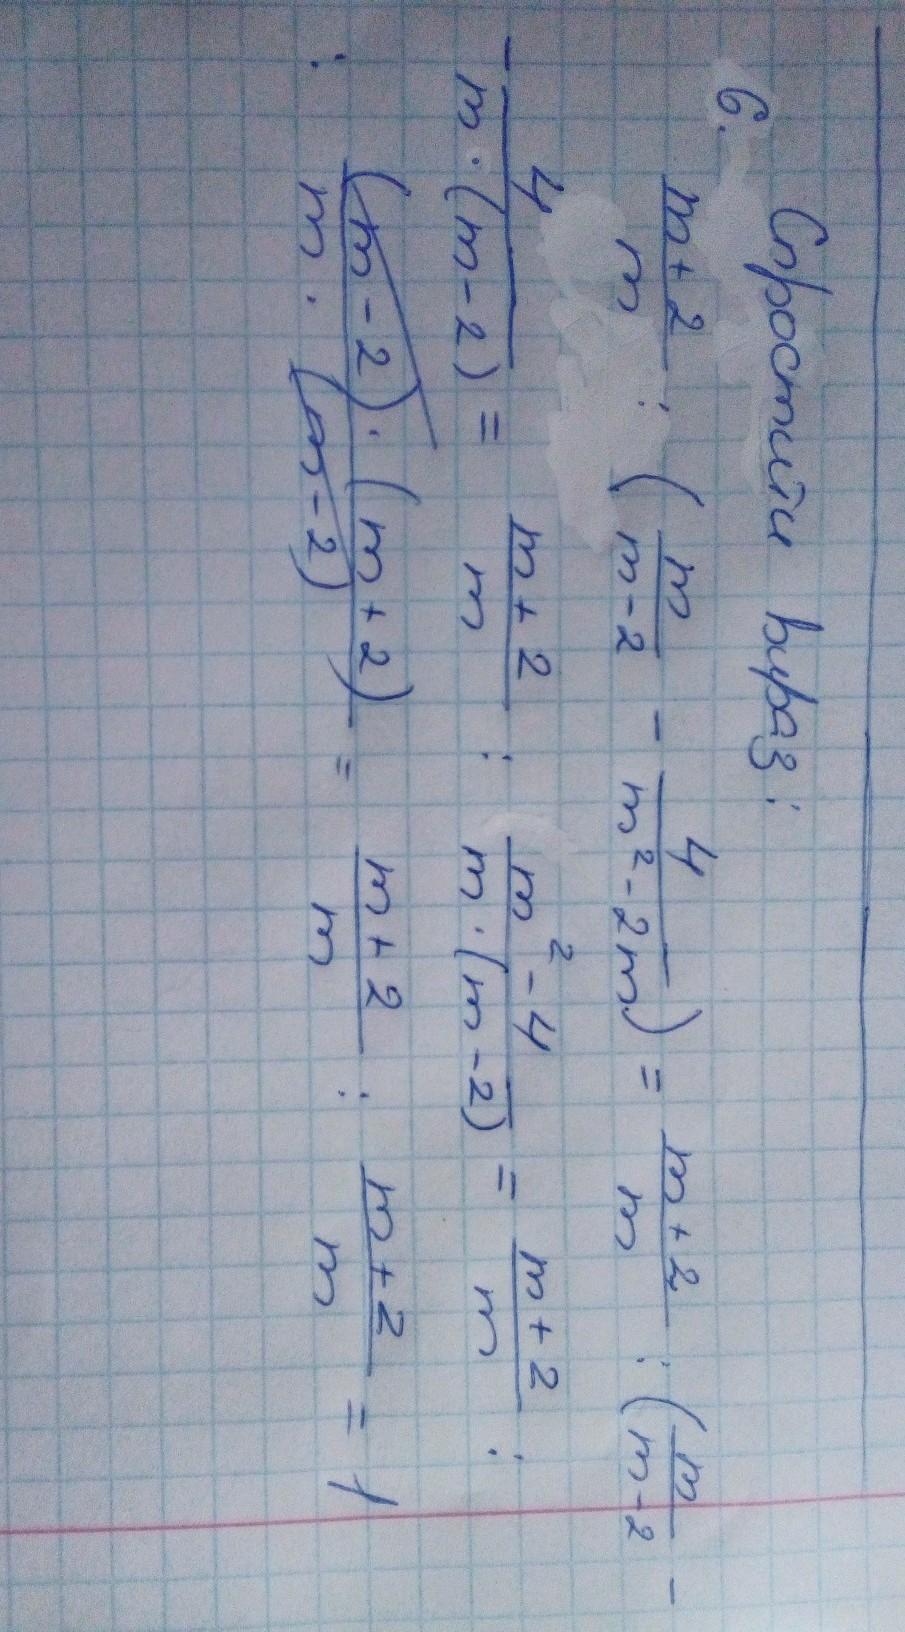 6. Спростити вираз:
\frac{m+2}{m} : (\frac{m}{m-2} - \frac{4}{m^2-2m}) = \frac{m+2}{m} : (\frac{m}{m-2} -
- \frac{4}{m \cdot (m-2)} = \frac{m+2}{m} : \frac{m^2-4}{m \cdot (m-2)} = \frac{m+2}{m} :
: \frac{(m-2) \cdot (m+2)}{m \cdot (m-2)} = \frac{m+2}{m} : \frac{m+2}{m} = 1